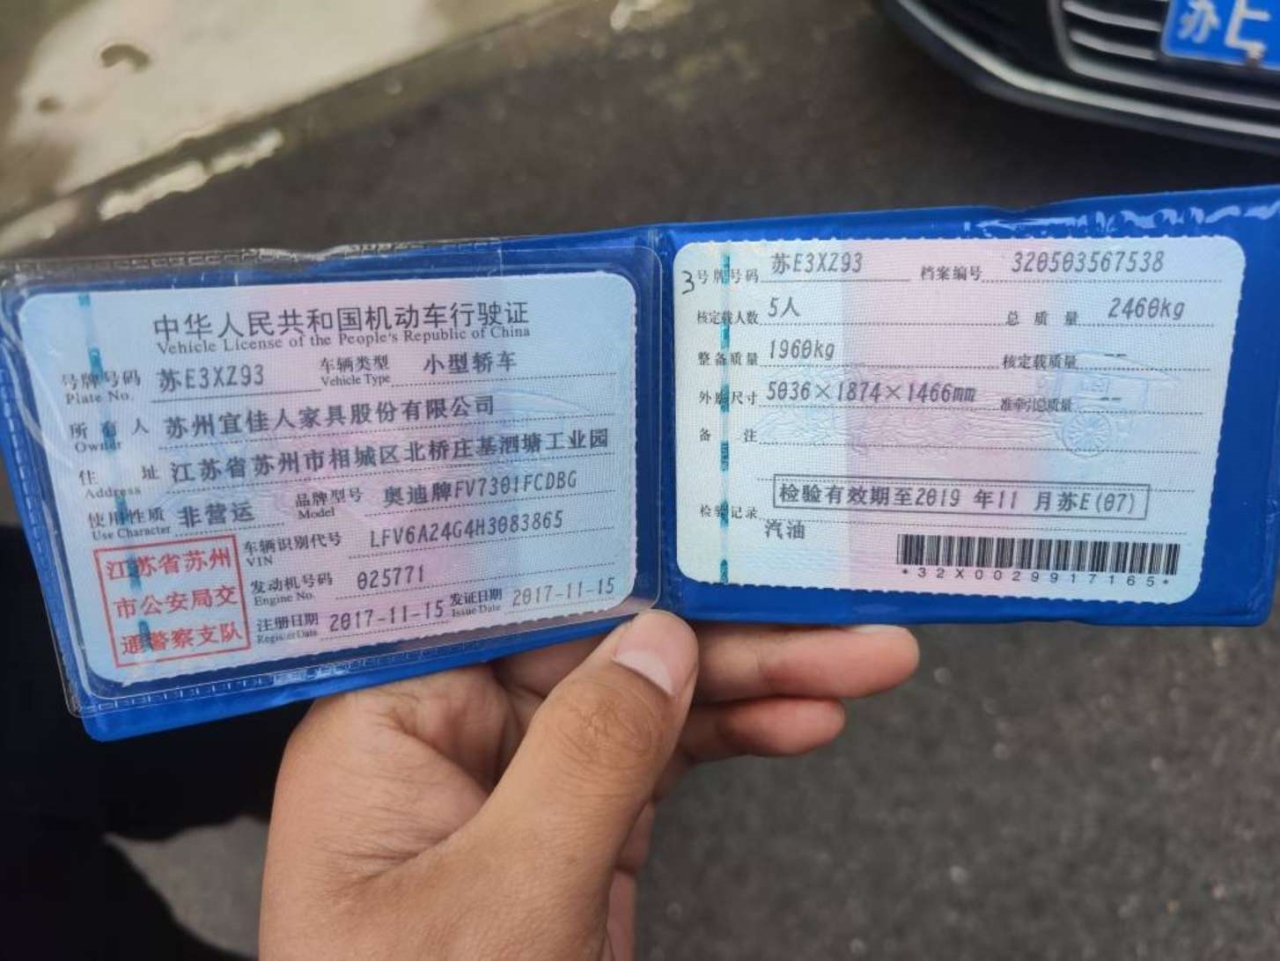 中华人民共和国机动车行驶证
Vehicle License of the People's Republic of China
号牌号码 苏E3XZ93 车辆类型 小型轿车
Plate No. Vehicle Type
所有人 苏州宜佳人家具股份有限公司
Owner
住址 江苏省苏州市相城区北桥庄基泗塘工业园
Address
使用性质 非营运 品牌型号 奥迪牌FV7301FCDBG
Use Character Model
车辆识别代号 LFV6A24G4H3083865
VIN
发动机号码 025771
Engine No.
注册日期 2017-11-15 发证日期 2017-11-15
Register Date Issue Date
江苏省苏州
市公安局交
通警察支队
3
号牌号码 苏E3XZ93 档案编号 320503567538
核定载人数 5人 总质量 2460kg
整备质量 1960kg 核定载质量 --
外廓尺寸 5036×1874×1466mm 准牵引总质量 --
备注
检验有效期至2019年11月苏E(07)
检验记录
汽油
*32X0029917165*
苏E